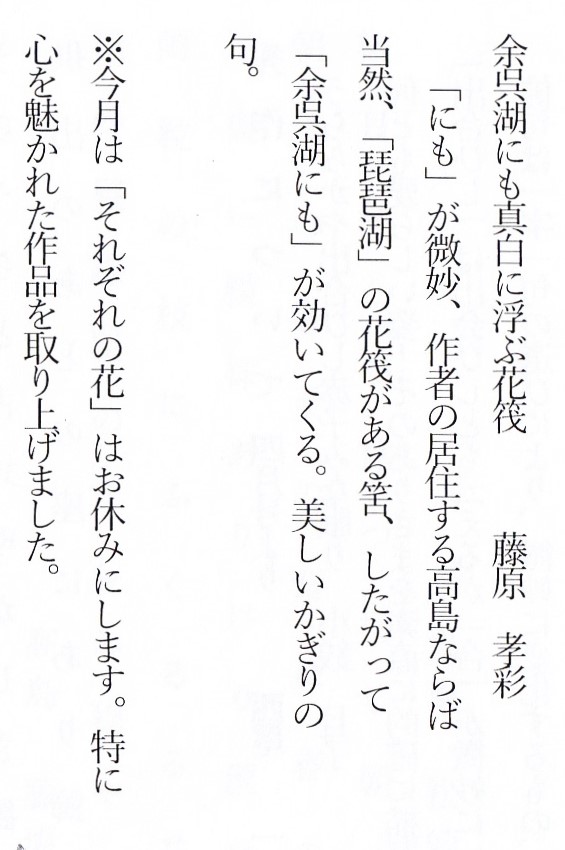 余呉湖にも真白に浮ぶ花筏　　藤原　孝彩
「にも」が微妙、作者の居住する高島ならば
当然、「琵琶湖」の花筏がある筈、したがって
「余呉湖にも」が効いてくる。美しいかぎりの
句。
※今月は「それぞれの花」はお休みにします。特に
心を魅かれた作品を取り上げました。